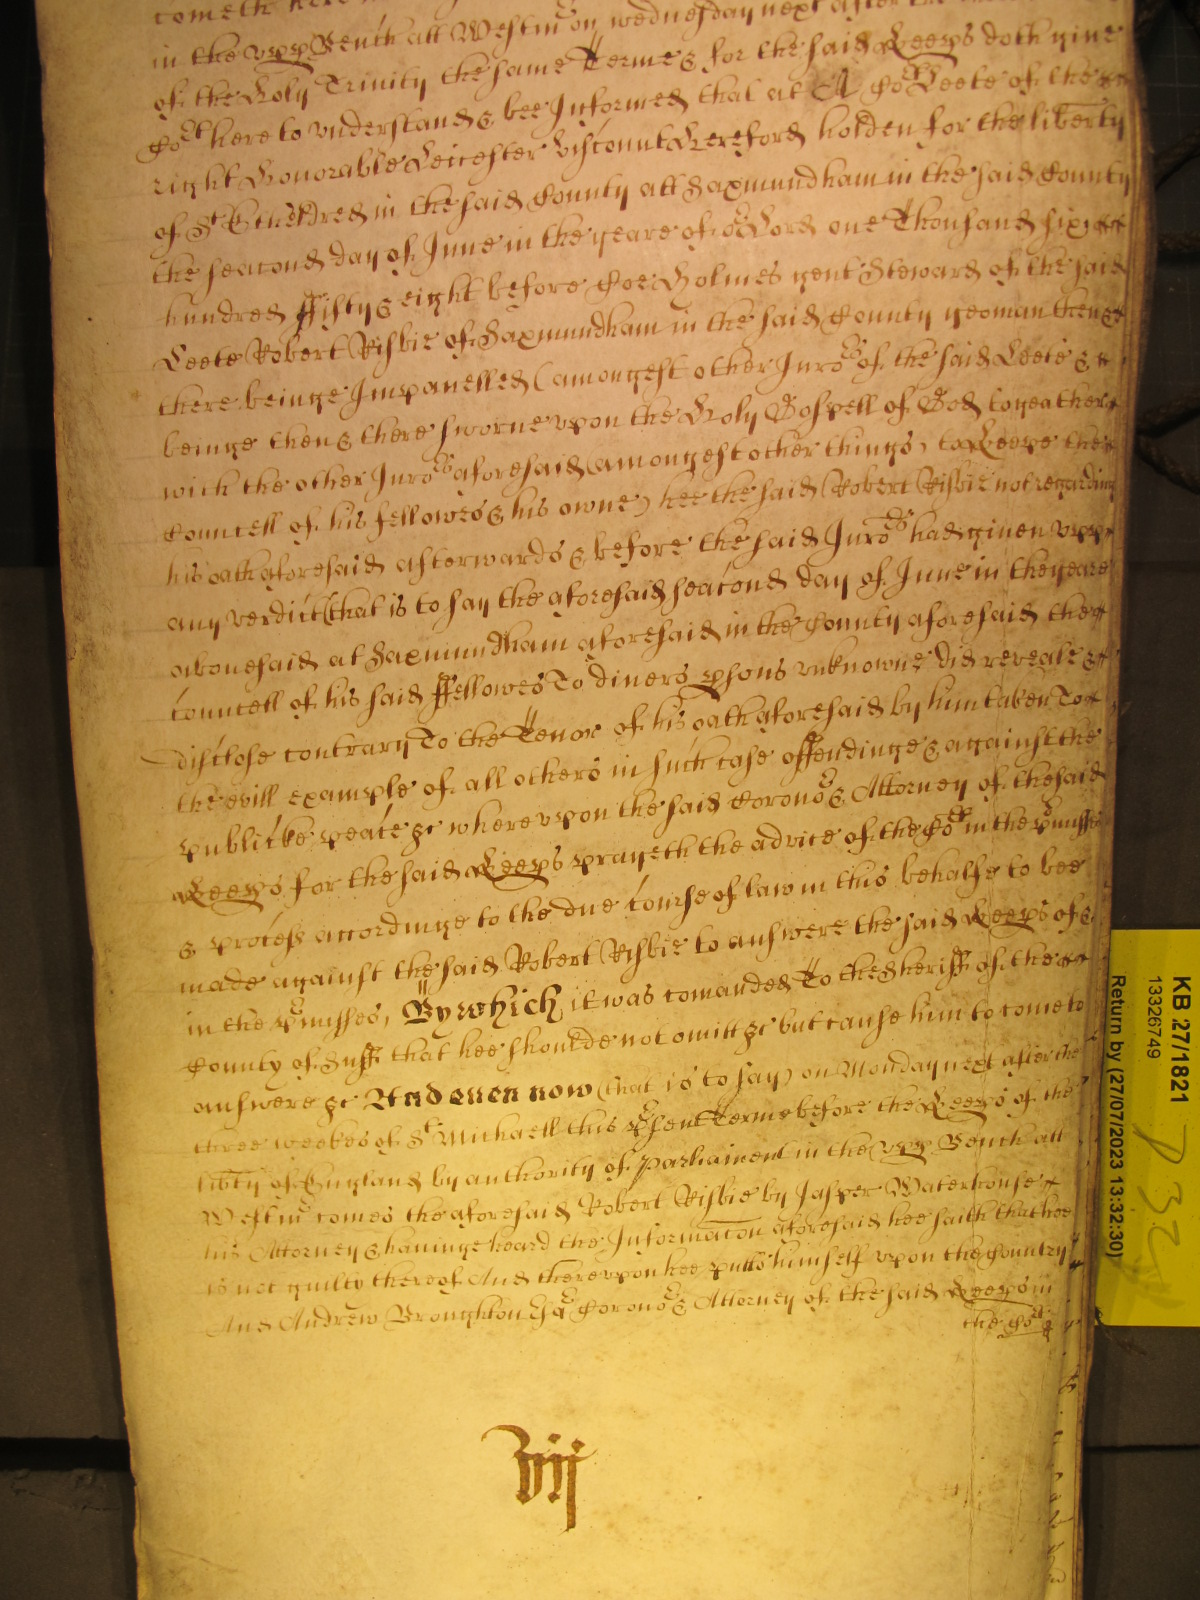 cometh here
in the upp Bench att Westmr on wednesday next after the
of the Holy Trinity the same Terme & for the said Keeps doth give
Cort here to understand & bee Informed that at A Cort Leete of the
right Honorable Leicester Viscount Hereford holden for the liberty
of St Etheldred in the said County att Saxmundham in the said County
the seacond day of June in the yeare of or Lord one Thousand six
hundred ffifty & eight before Holmes gent Steward of the said
Leete Robert Risbie of Saxmundham in the said County yeoman then &
there beinge Impanelled (amongest other Juros of the said Leete &
beinge then & there sworne upon the Holy Gospell of God togeather
with the other Juros aforesaid (amongest other things) to Keepe the
Councell of his fellowes & his owne) hee the said Robert Risbie not regarding
his oath aforesaid afterwards & before the said Juros had given upp
any verdict (that is to say the aforesaid seacond day of June in the yeare
abovesaid at Saxmundham aforesaid in the County aforesaid the
councell of his said ffellowes To divers psons unknowne did reveale &
disclose contrary To the Tenor of his oath aforesaid by him taken To
the evill example of all others in such case offendinge & against the
publicke peace &c whereupon the said Corono & Attorney of the said
Keeps for the said Keeps prayeth the advice of the Cort in the pmisses
& process accordinge to the due course of law in this behalfe to bee
made against the said Robert Risbie to answere the said Keeps of &
in the pmisses, By which it was comanded To the Sheriff of the
County of Suff that hee should not omitt &c but cause him to come to
answere &c And even now (that is to say) on Monday next after the
three weekes of St Michaell this psent Terme before the Keeps of the
libty of England by authority of parliament in the upp Bench att
Westmr comes the aforesaid Robert Risbie by Jasper Waterhouse
his Attorney & havinge heard the Informacon aforesaid hee saith that hee
is not guilty thereof And thereupon hee putts himself upon the Country
And Andrew Broughton Esqr Corono & Attorney of the said Keeps in
the Cort
viij
KB 27/1821
13326749
Return by (27/07/2023 13:32:30)